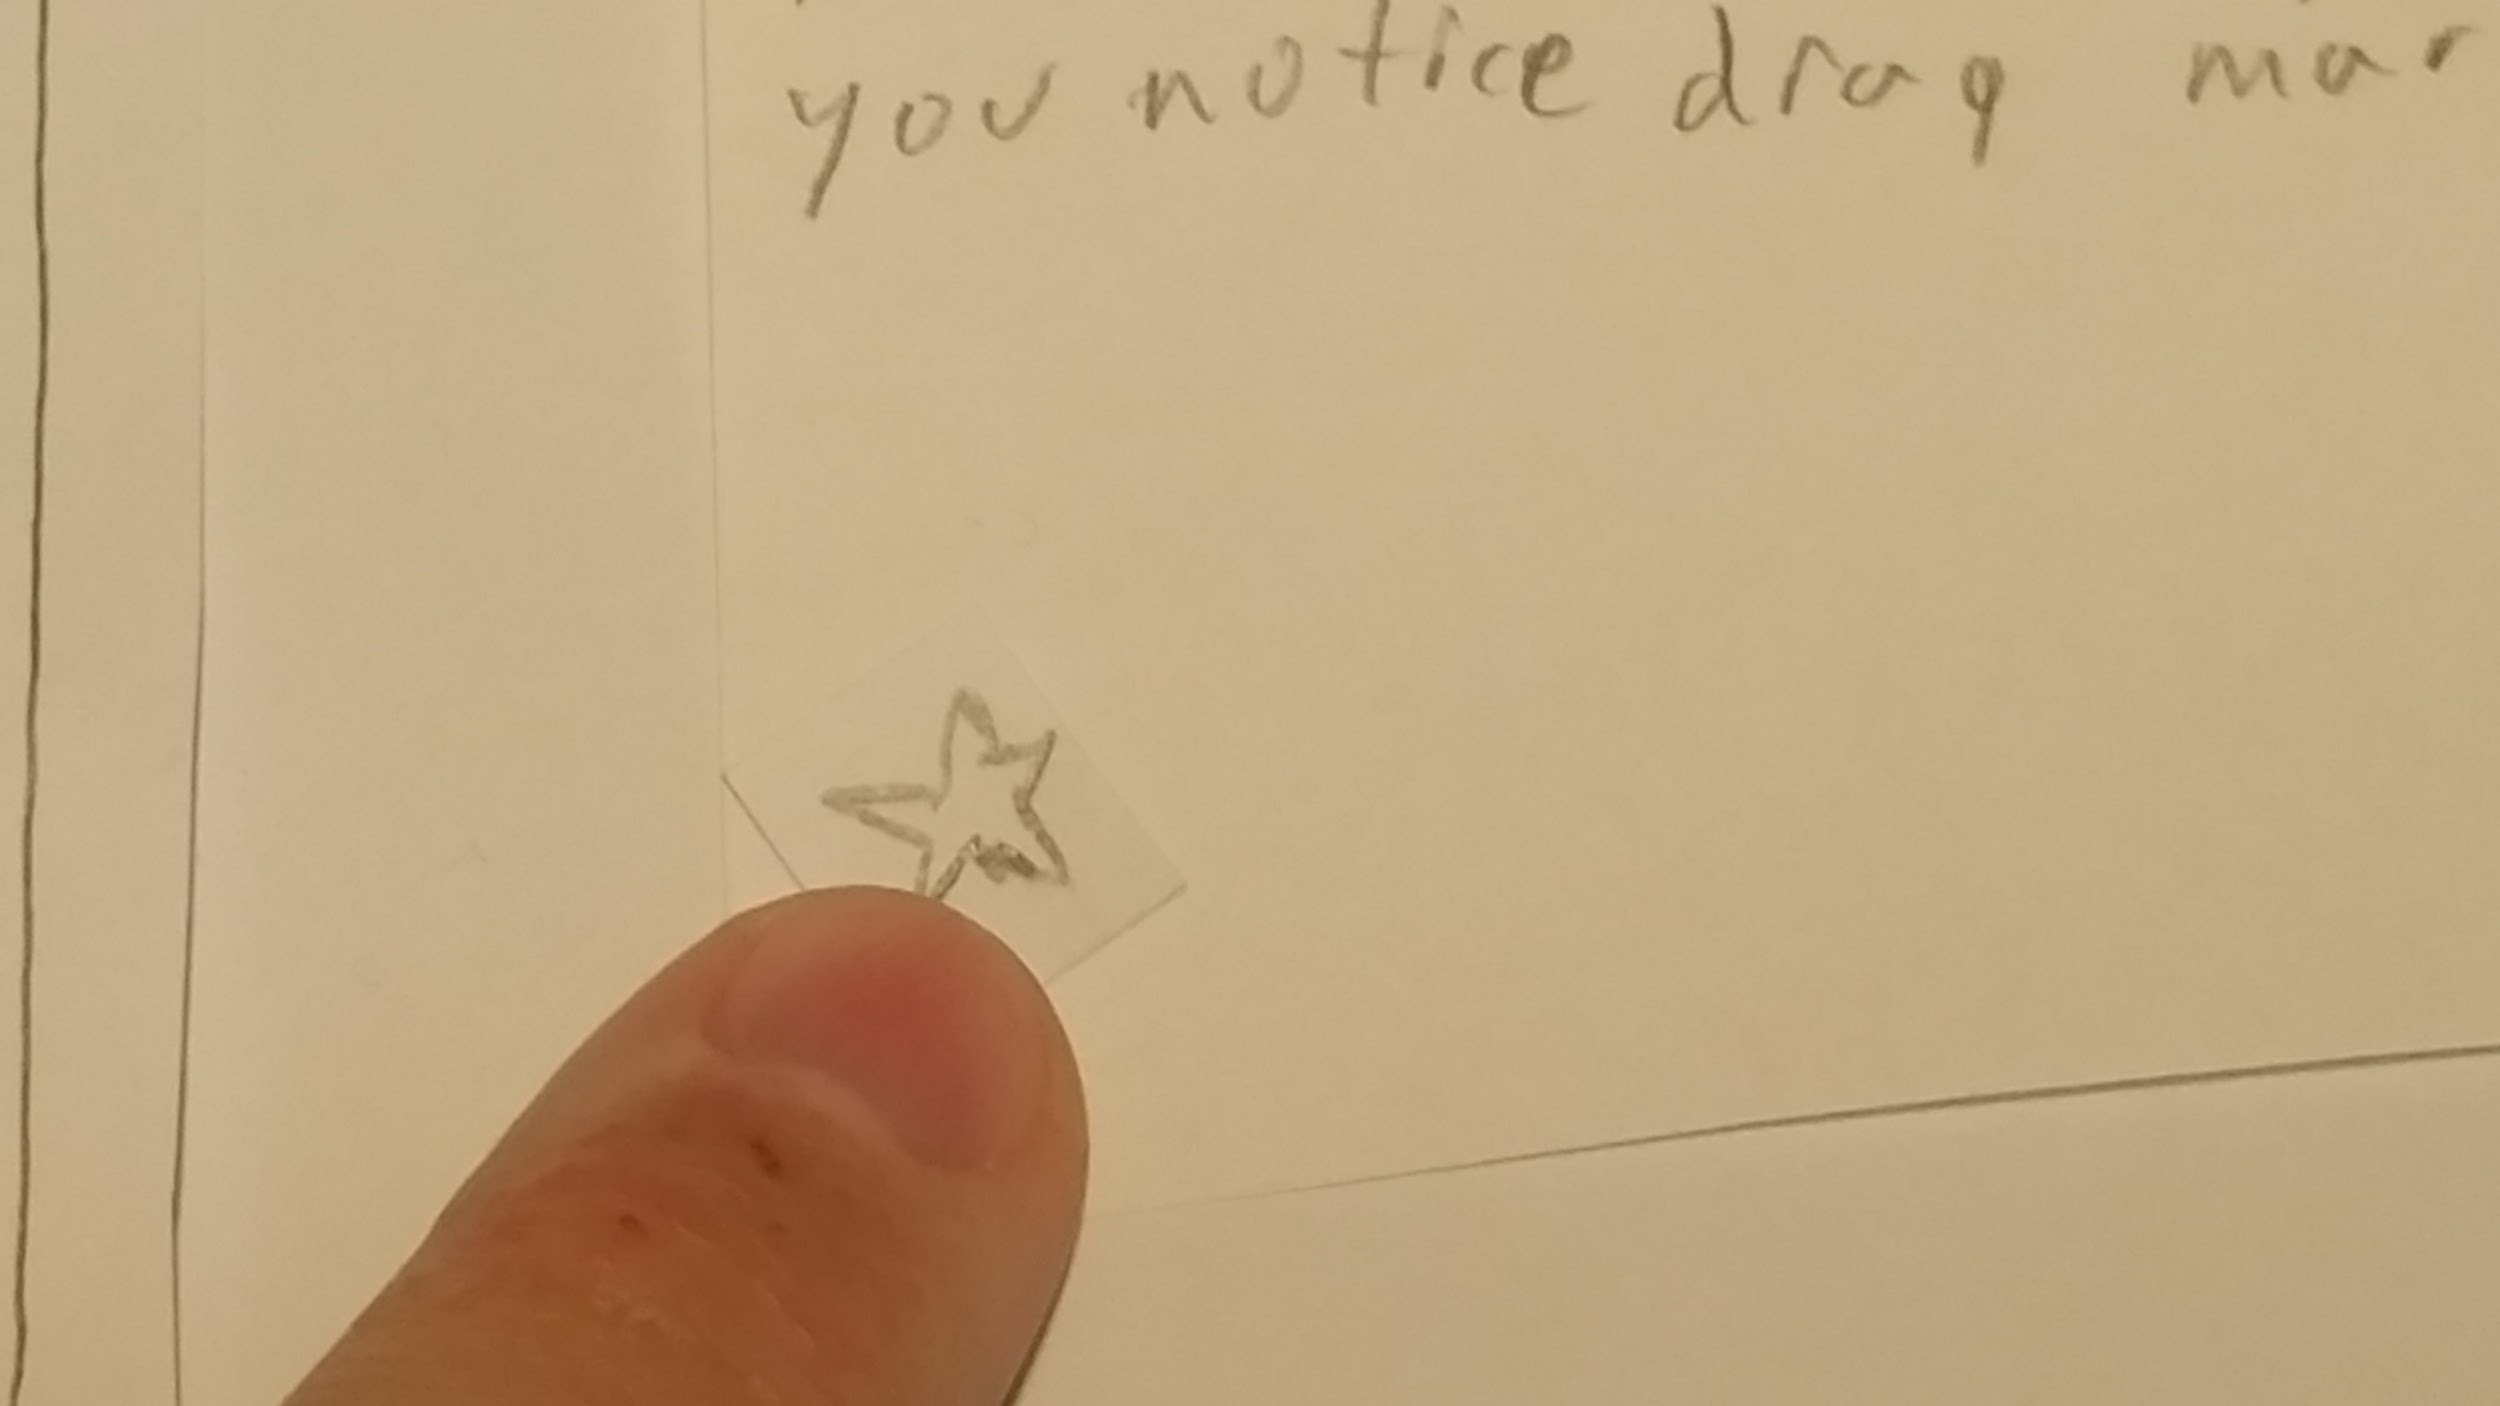 you notice drag mar